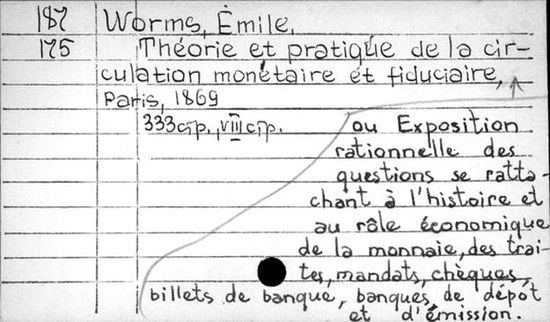 187 Worms, Émile.
175 Théorie et pratique de la cir-
culation monétaire et fiduciaire,
Paris, 1869
333стр., VIII стр.
ou Exposition
rationnelle des
questions se ratta-
chant à l'histoire et
au rôle économique
de la monnaie, des trai-
tes, mandats, chèques,
billets de banque, banques de dépôt
et d'émission.